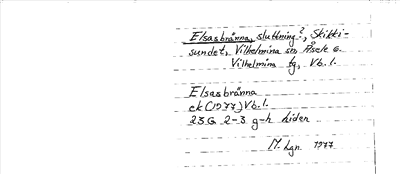 Elsasbränna, sluttning?, Skikki-
sundet, Vilhelmina sn, Åsele
Vilhelmina tg, Vb. l.
Elsasbränna
ek (1977) Vb. l.
23G 2-3 g-h lider
M. Lgn 1977